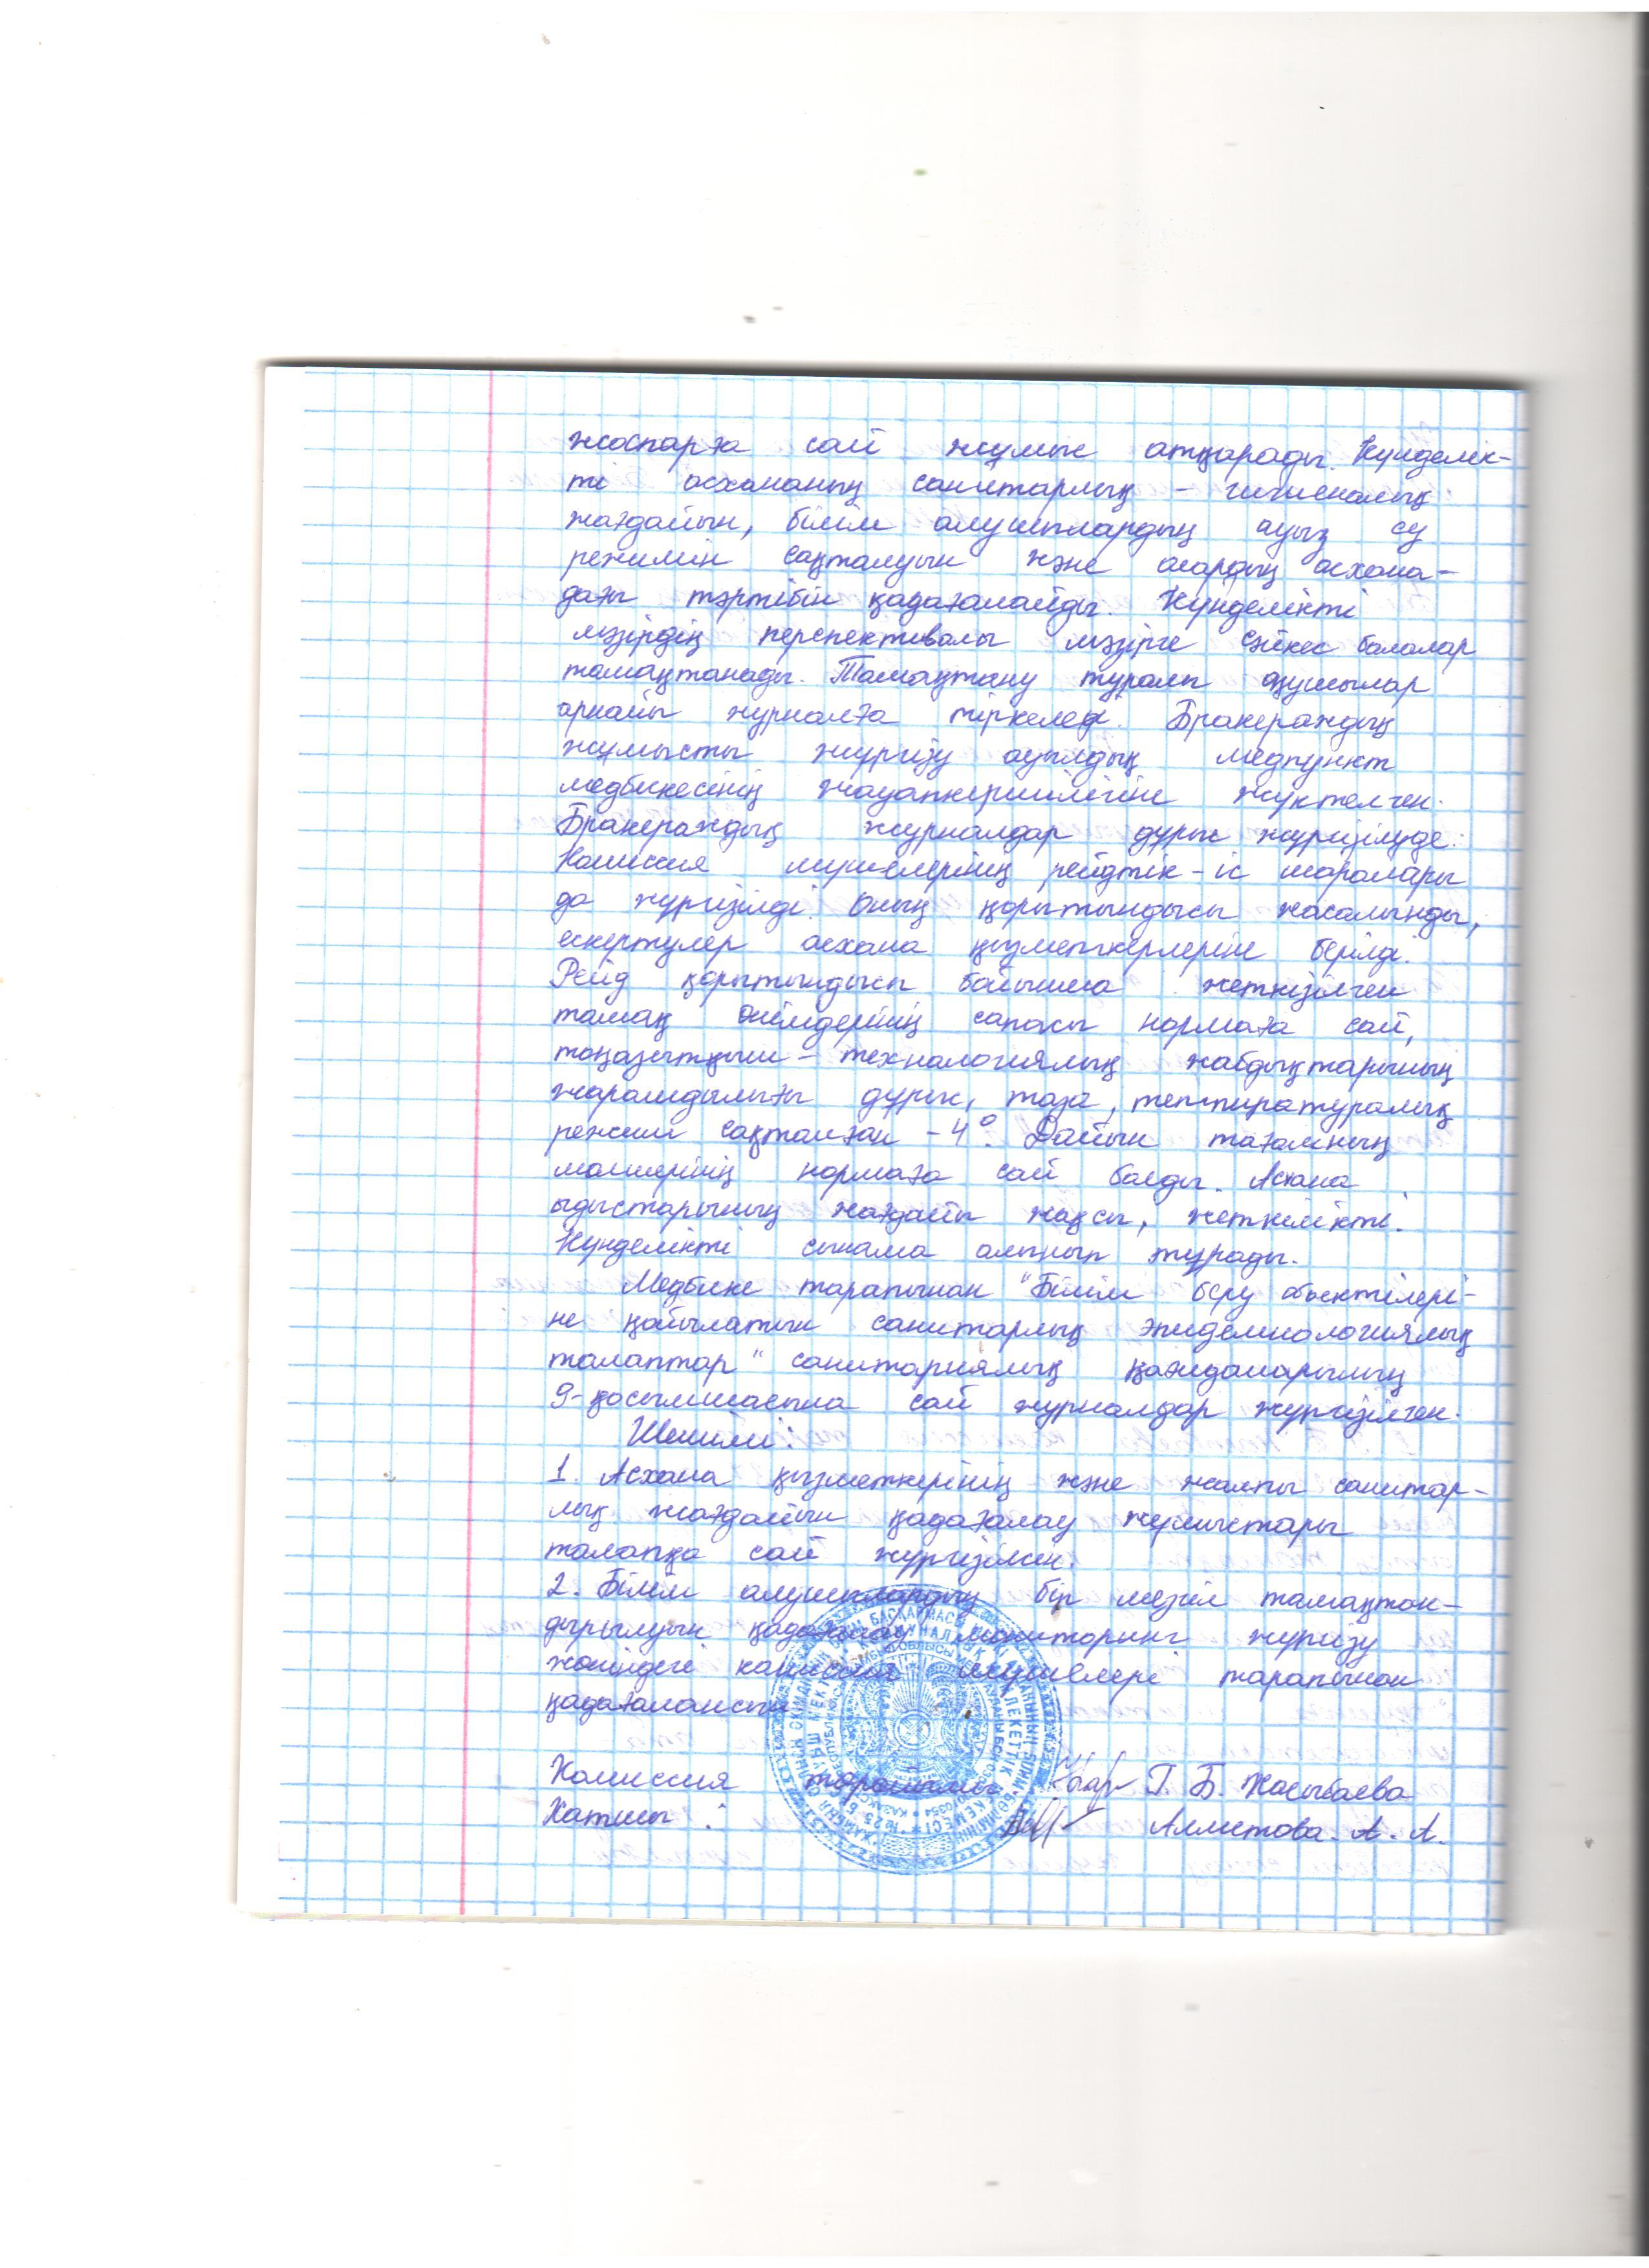 жоспарға сай жұмыс атқарады. Күнделік-
ті асхананың санитарлық - гигиеналық
жағдайын, білім алушылардың ауыз су
режимін сақталуын және олардың асхана-
дағы тәртібін қадағалайды. Күнделікті
мәзірдің перспективалы мәзірге сәйкес балалар
тамақтанады. Тамақтану туралы оқушылар
арнайы журналға тіркеледі. Бракераждық
жұмысты жүргізу ауылдық медпункт
медбикесінің жауапкершілігіне жүктелген.
Бракераждық журналдар дұрыс жүргізілуде.
Комиссия мүшелерінің рейдтік - іс шаралары
да жүргізілді. Оның қорытындысы жасалынды,
ескертулер асхана қызметкерлеріне берілді.
Рейд қорытындысы бойынша жеткізілген
тамақ өнімдерінің сапасы нормаға сай,
тоңазытқыш - технологиялық жабдықтарының
жарамдылығы дұрыс, таза, температуралық
режим сақталған - 4°. Дайын тағамның
мөлшерінің нормаға сай болды. Асхана
ыдыстарының жағдайы жақсы, жеткілікті.
Күнделікті сынама алынып тұрады.
Медбике тарапынан "Білім беру объектілері-
не қойылатын санитарлық эпидемиологиялық
талаптар" санитариялық қағидаларының
9-қосымшасына сай журналдар жүргізілген.
Шешімі:
1. Асхана қызметкерінің және жалпы санитар-
лық жағдайын қадағалау жұмыстары
талапқа сай жүргізілсін.
2. Білім алушылардың бір мезгіл тамақтан-
дырылуын қадағалау мониторинг жүргізу
жөніндегі комиссия мүшелері тарапынан
қадағалансын.
Комиссия төрайымы Г. Б. Жасыбаева
Хатшы : Алметова. А. А.